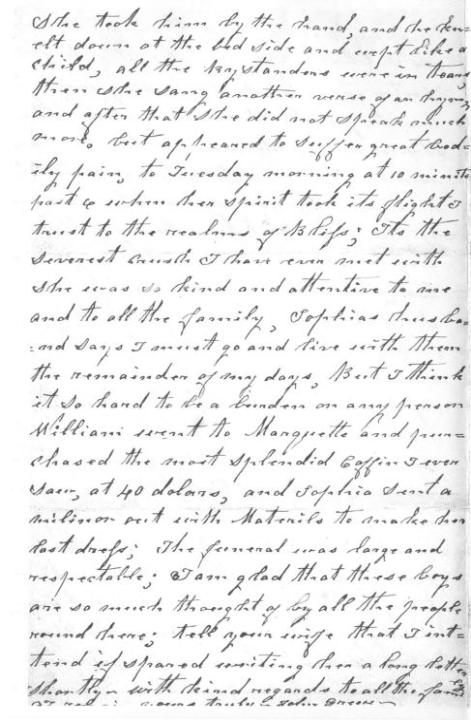 She took him by the hand, and he kn-
elt down at the bed side and wept like a
child, all the bystanders were in tears
then she sang another verse of an hymn
and after that she did not speak much
more, but appeared to suffer great bod-
ily pain, to Tuesday morning at 10 minits
past 6 when her spirit took its flight I
trust to the realms of Bliss; Its the
severest crush I have ever met with
she was so kind and attentive to me
and to all the family, Sophias husba-
nd says I must go and live with them
the remainder of my days, But I think
it so hard to be a burden on any person
William went to Marquette and pur-
chased the most splendid Coffin I ever
saw, at 40 dolars, and Sophia sent a
miliner out with Materils to make her
last dress; The funeral was large and
respectable; I am glad that these boys
are so much thought of by all the people
round here; tell your wife that I int-
tend if spared writing her a long letter
Shortly with kind regards to all the family
I yours truly John